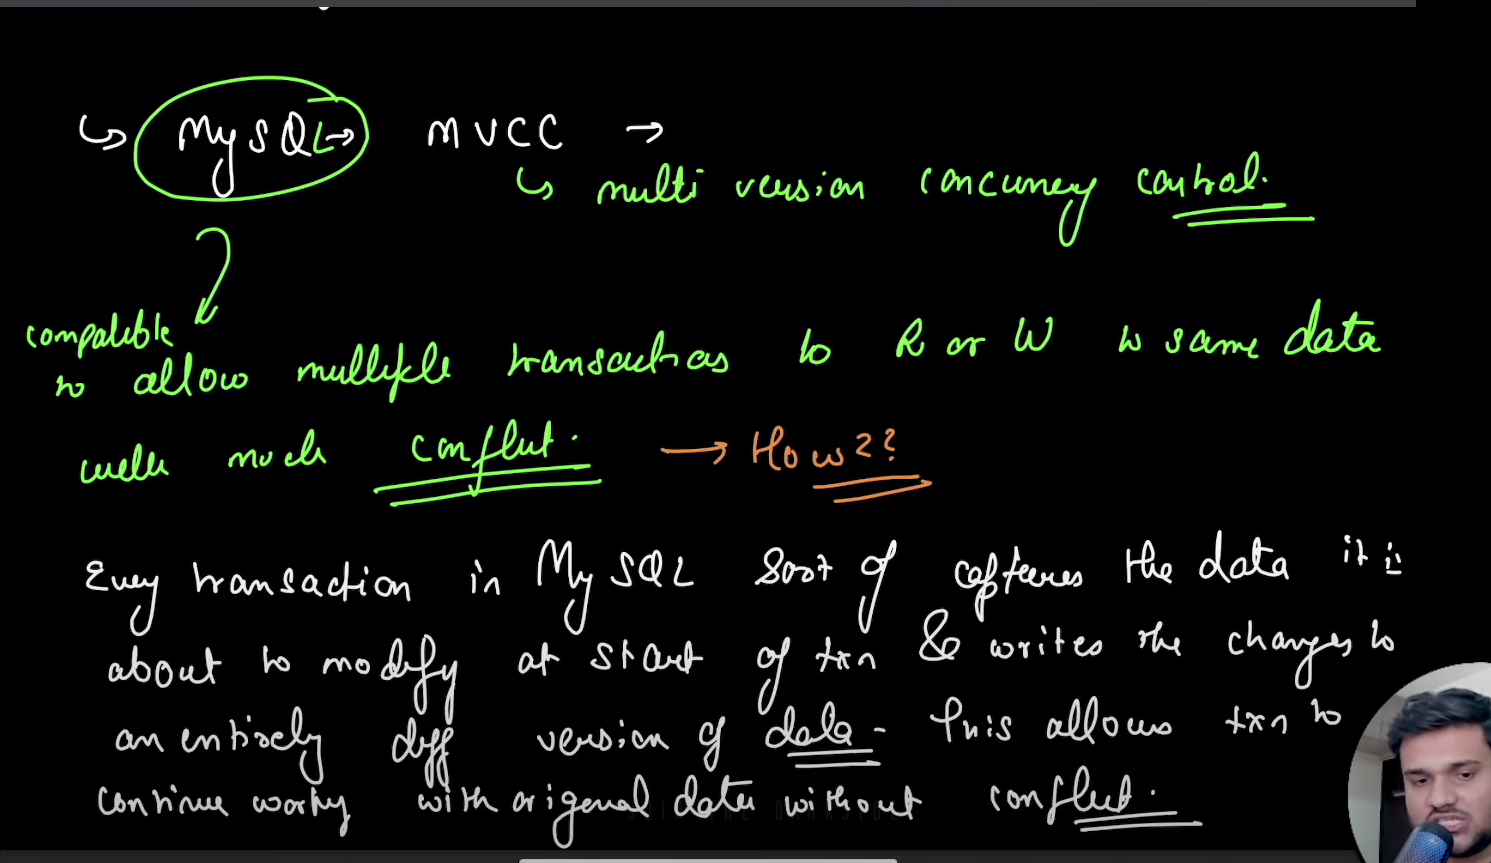 ↳ MySQL → MVCC →
↳ multi version concurrency control.
compatible
to allow multiple transactions to R or W to same data
much conflict. → How??
Every transaction in MySQL sort of captures the data it is
about to modify at start of txn & writes the changes to
an entirely diff version of data - This allows txn to
continue working with original data without conflict.